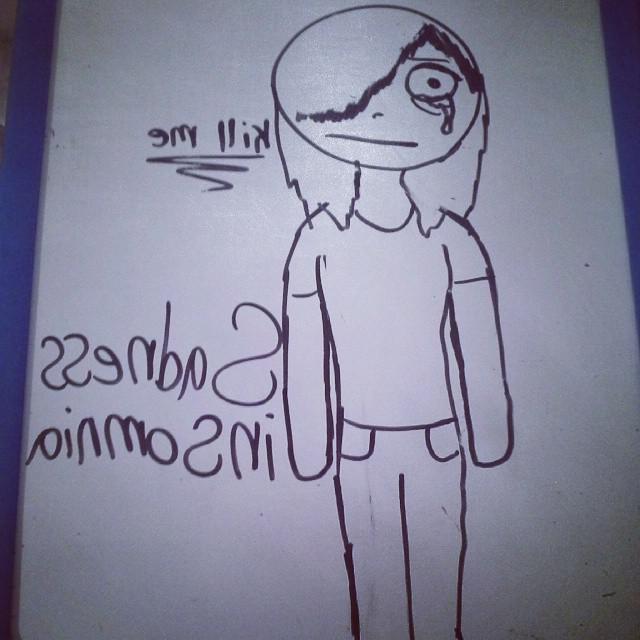 kill me
Sadness
insomnia